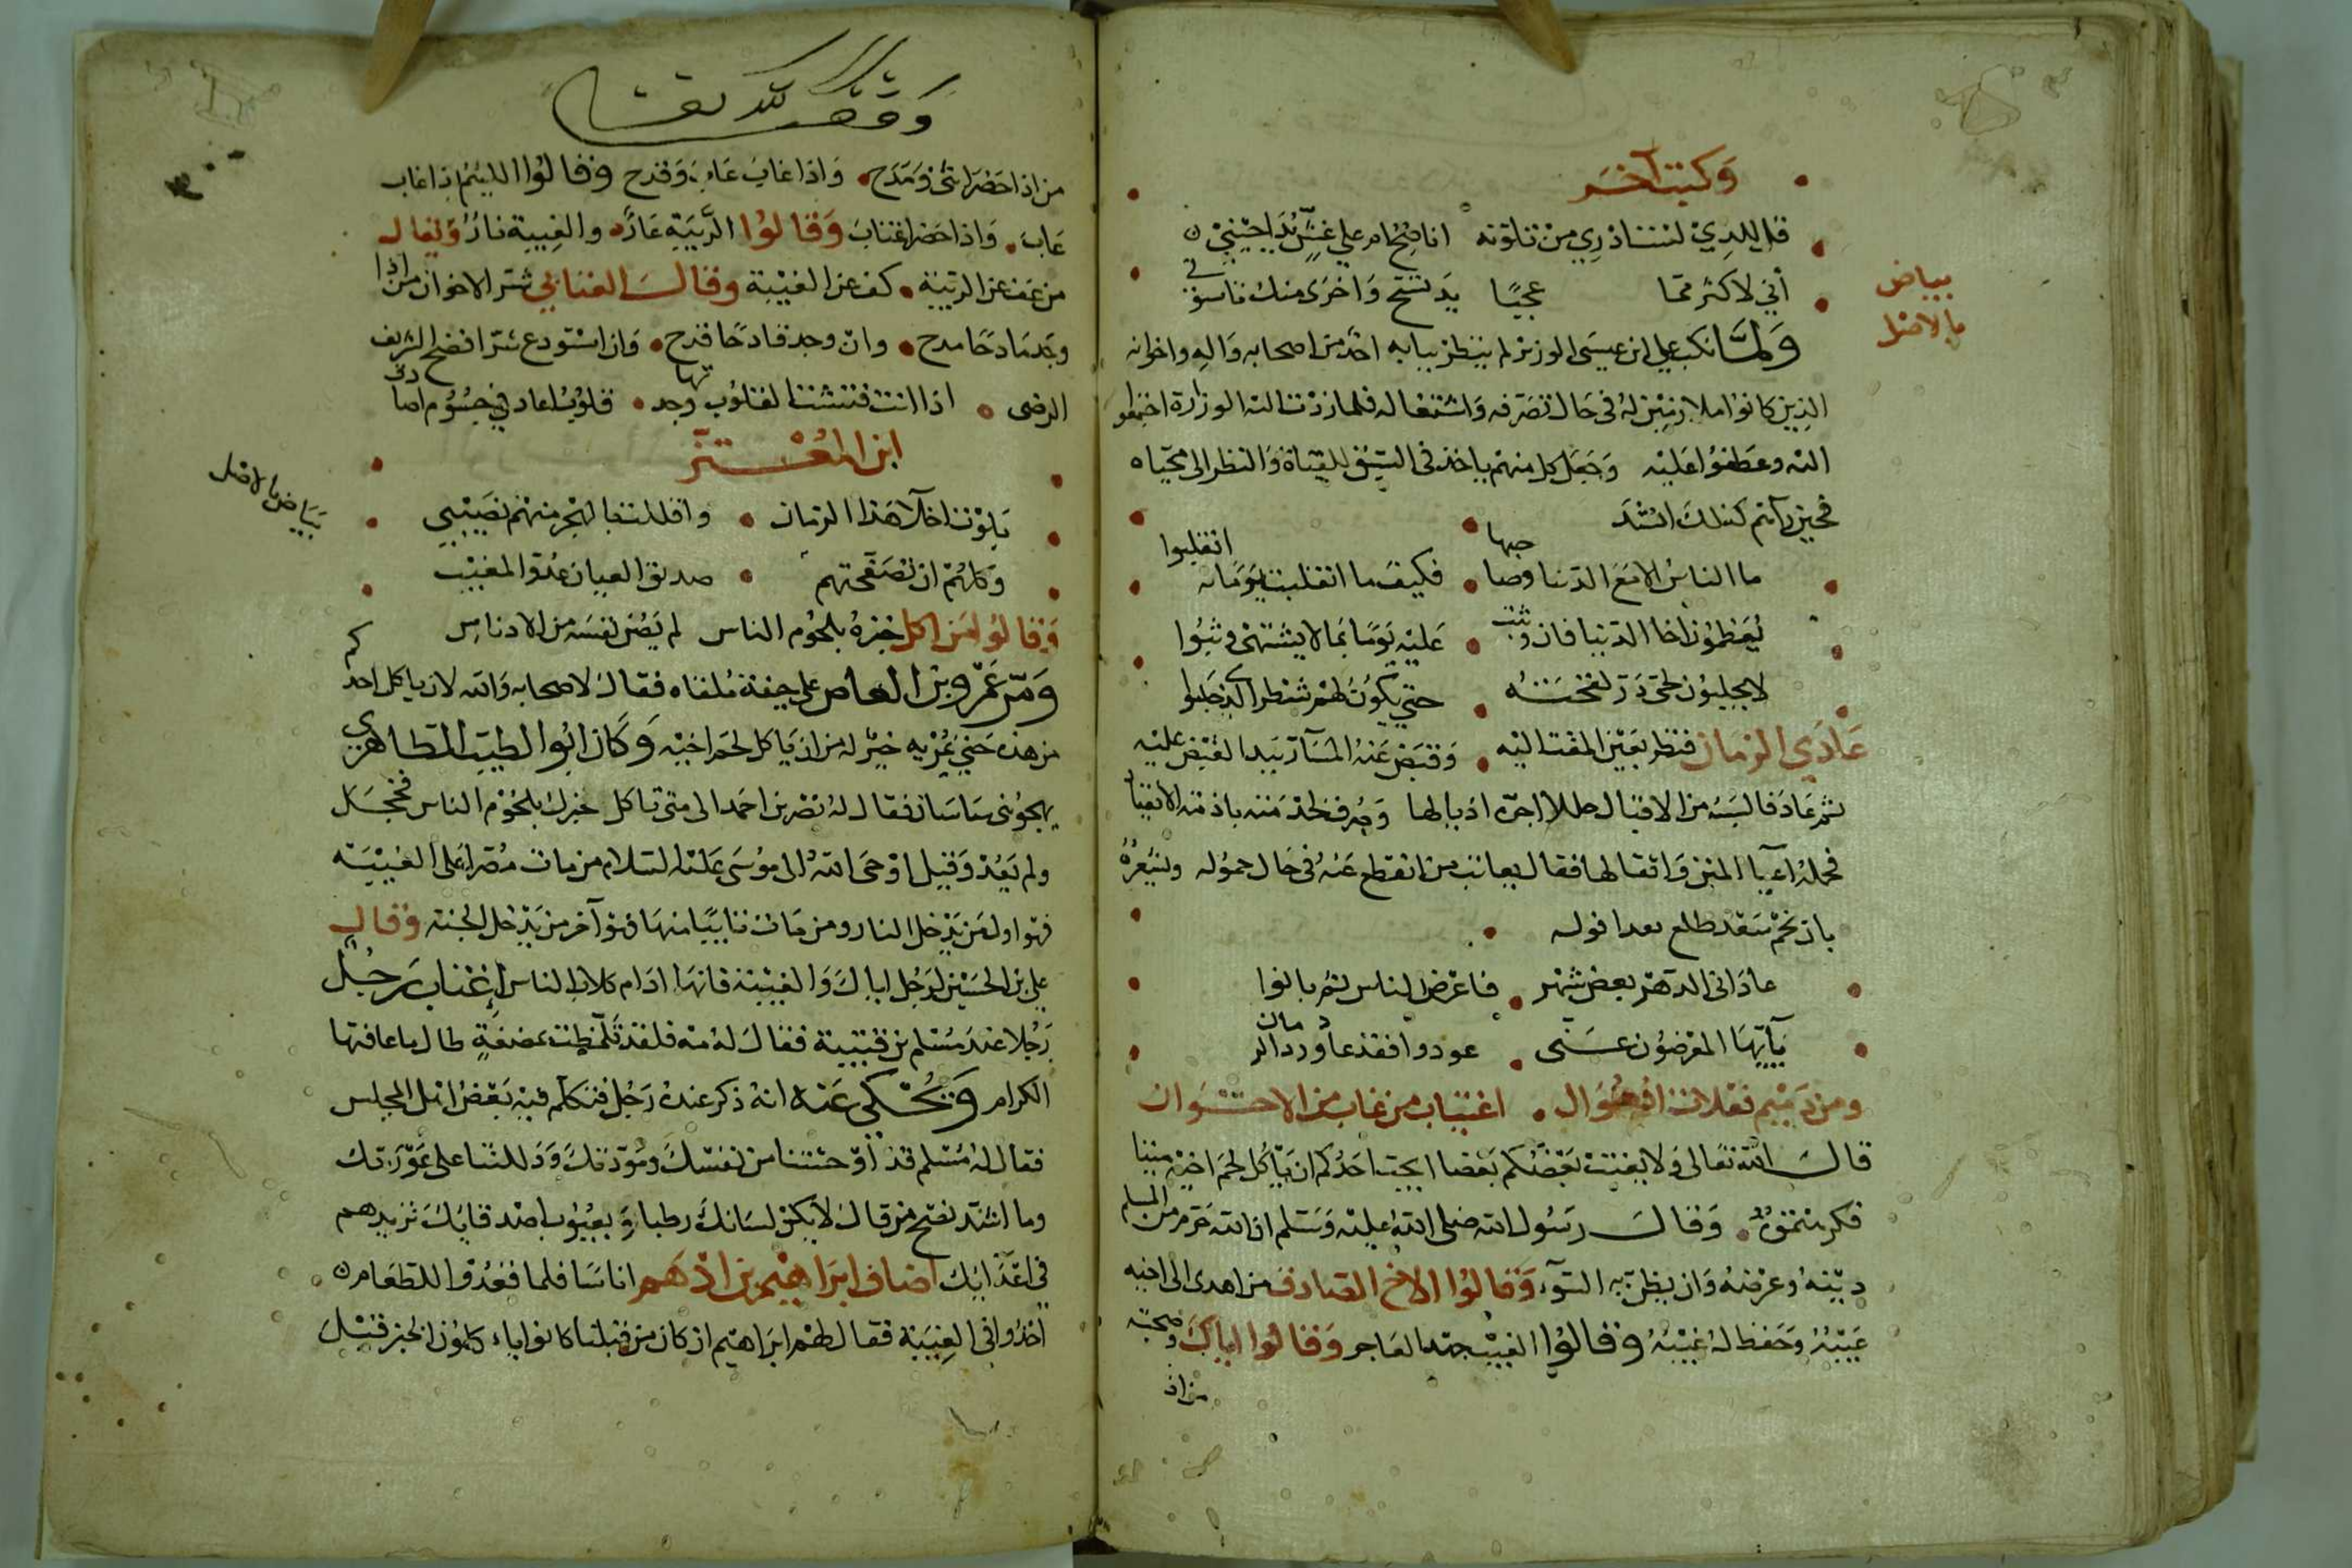 وكتب آخر
قل للذي لست أدري من تلونه   أناصح أم على غش يداجيني
إني لأكثر مما   عجبًا   يد تشح وأخرى منك تأسو
في
بياض
بالأصل
ولما نكب علي بن عيسى الوزير لم ينظر ببابه أحد من أصحابه وآله وإخوانه
الذين كانوا ملازمين له في حال تصرفه واشتغاله فلما ردت اليه الوزارة اجتمعوا
اليه وعطفوا عليه وجعل كل منهم ياخذ في السبق للقياه والنظر الى محياه
فحين رآهم كذلك انشد
ما الناس الا مع الدنيا وصاحبها   فكيف ما انقلبت يوما به انقلبوا
يعظمون اخا الدنيا فان وثبت   عليه يوما بما لا يشتهى وثبوا
لا يحلبون لحي در لقحته   حتى يكون لهم شطر الذي حلبوا
عادى الزمان فنظر بعين المقت اليه   وقبض عنه المسآر بيد القبض عليه
ثم عاد فالبسه من الاقبال حللا
فحمله اعبا المنن واثقالها فقال يعاتب من انقطع عنه في حال خموله
بان نجم سعد طلع بعد افوله
عاداني الدهر بعض شهر   فاعرض الناس ثم بانوا
يآيها المعرضون عني   عودوا فقد عاود الزمان
ومن ذميم   اغتياب من غاب من الاخوان
قال الله تعالى ولا يغتب بعضكم بعضا ايحب احدكم ان ياكل لحم اخيه ميتا
فكرهتموه وقال رسول الله صلى الله عليه وسلم ان الله حرم من المسلم
دمه وعرضه وان يظن به السوء وقالوا الاخ الصادق من اهدى الى اخيه
عيبه وحفظ له غيبه وقالوا الغيبة جهد العاجز وقالوا اياك وصحبة
من اذا
وقف لله تعالى
من اذا حضر اثنى ومدح واذا غاب عاب وقدح وقالوا اللئيم اذا غاب
عاب واذا حضر اغتاب وقالوا الريبة عار والغيبة نار ويقال
من عف عن الريبة كف عن الغيبة وقال العتابي شر الاخوان من اذا
وجد مادحا مدح وان وجد قادحا قدح وان استودع سرا افضح الشريف
الرضي   اذا انت فتشت القلوب وجدتها   قلوب اعاد في جسوم اصادق
ابن المعتز
بياض بالأصل
بلوت اخلا هذا الزمان   واقللت بالهجر منهم نصيبي
وكلهم ان تصفحتهم   صديق العيان عدو المغيب
وقالوا من اكل خبزه بلحوم الناس لم يصن نفسه من الادناس
ومر عمرو بن العاص على جيفة ملقاه فقال لاصحابه والله لان ياكل احدكم
من هذه حتى خير له من ان ياكل لحم اخيه وكان ابو الطيب الطاهري
يهجو بني ساسان فقال له نصر بن احمد الى متى تاكل خبزك بلحوم الناس فخجل
ولم يعد وقيل اوحى الله الى موسى عليه السلام من مات مصرا على الغيبة
فهو اول من يدخل النار ومن مات تايبا منها فهو آخر من يدخل الجنة وقال
علي بن الحسين لرجل اياك والغيبة فانها ادام كلاب الناس اغتاب رجل
رجلا عند مسلم بن قتيبة فقال له مه فلقد تلمظت بمضغة طال ما عافها
الكرام ويحكى عنه انه ذكر عنده رجل فتكلم فيه بعض اهل المجلس
فقال له مسلم قد اوحشتنا من نفسك ومودتك ودللتنا على عورتك
وما اشد نصح من قال لا يكن لسانك رطبا بعيوب اصدقايك تزيدهم
في اعدايك اضاف ابراهيم بن ادهم اناسا فلما قعدوا للطعام
اخذوا في الغيبة فقال لهم ابراهيم ان كان من قبلنا كانوا ياكلون الخبز قبل